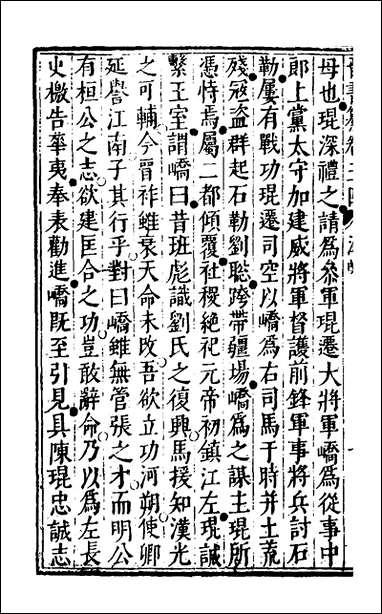 母也琨深禮之請爲參軍琨遷大將軍嶠爲從事中
郎上黨太守加建威將軍督護前鋒軍事將兵討石
勒屢有戰功琨遷司空以嶠爲右司馬于時并土荒
殘寇盜群起石勒劉聦跨帶疆場嶠爲之謀主琨所
憑恃焉屬二都傾覆社稷絶祀元帝初鎮江左琨誠
繫王室謂嶠曰昔班彪識劉氏之復興馬援知漢光
之可輔今晉祚雖衰天命未改吾欲立功河朔使卿
延譽江南子其行乎對曰嶠雖無管張之才而明公
有桓公之志欲建匡合之功豈敢辭命乃以爲左長
史檄告華夷奉表勸進嶠既至引見具陳琨忠誠志